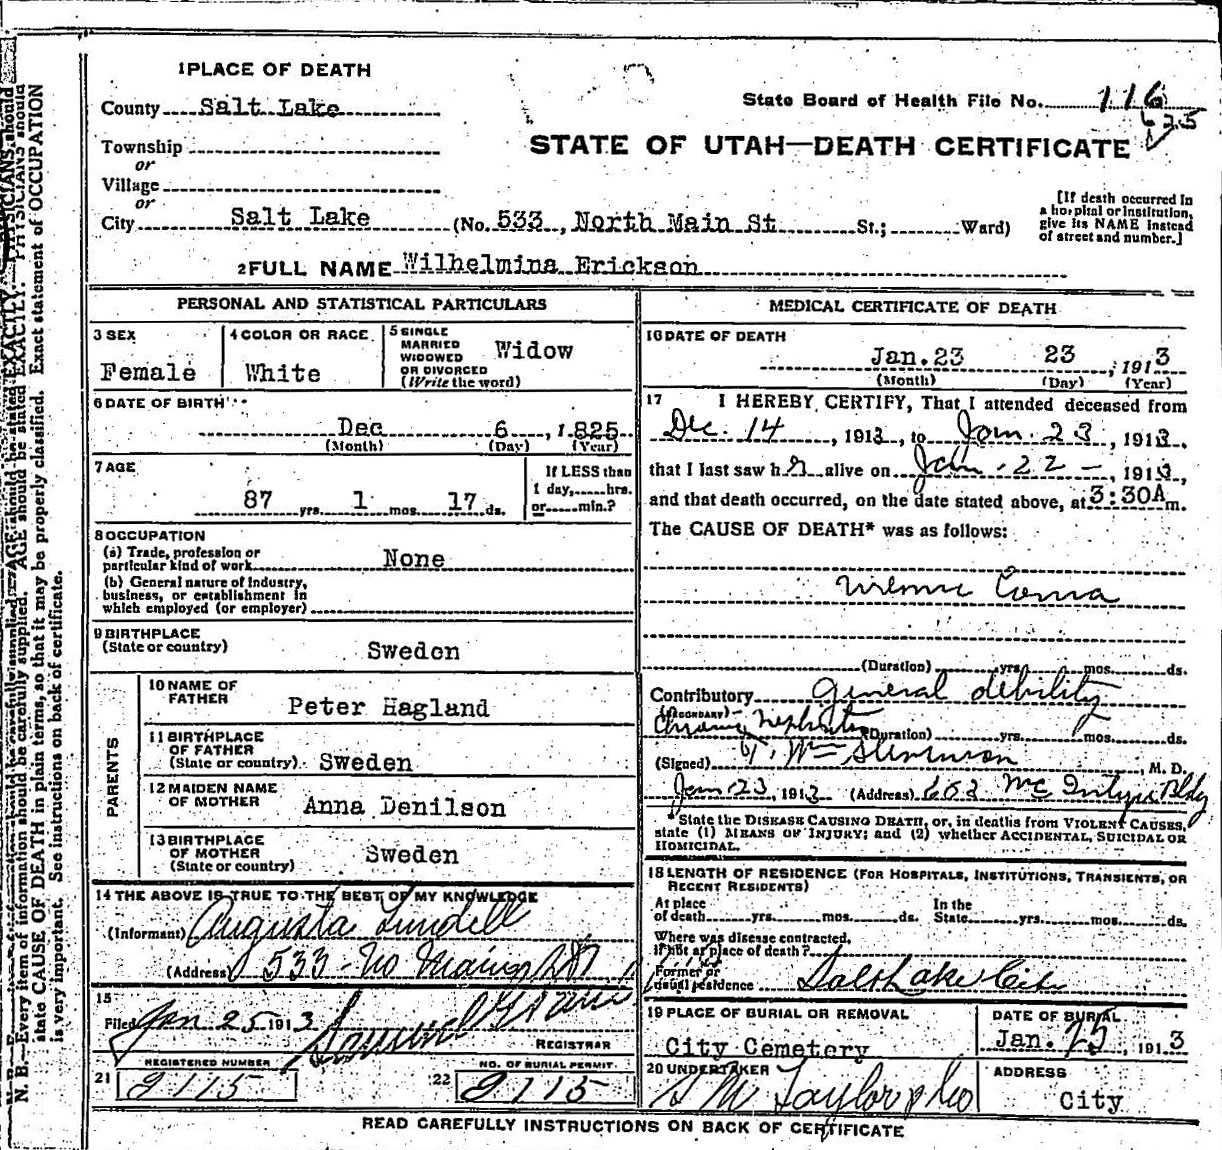 1 PLACE OF DEATH
County Salt Lake
State Board of Health File No. 116
625
Township
STATE OF UTAH—DEATH CERTIFICATE
or
Village
or
City Salt Lake (No. 533, North Main St St.; Ward)
[If death occurred in a hospital or institution, give its NAME instead of street and number.]
2 FULL NAME Wilhelmina Erickson
PERSONAL AND STATISTICAL PARTICULARS
3 SEX
Female
4 COLOR OR RACE
White
5 SINGLE
MARRIED
WIDOWED
OR DIVORCED
(Write the word)
Widow
6 DATE OF BIRTH
Dec 6, 1825
(Month) (Day) (Year)
7 AGE
87 yrs. 1 mos. 17 ds.
If LESS than
1 day, hrs.
or min.?
8 OCCUPATION
(a) Trade, profession or
particular kind of work None
(b) General nature of Industry,
business, or establishment in
which employed (or employer)
9 BIRTHPLACE
(State or country) Sweden
PARENTS
10 NAME OF
FATHER Peter Hagland
11 BIRTHPLACE
OF FATHER
(State or country) Sweden
12 MAIDEN NAME
OF MOTHER Anna Denilson
13 BIRTHPLACE
OF MOTHER
(State or country) Sweden
14 THE ABOVE IS TRUE TO THE BEST OF MY KNOWLEDGE
(Informant) Augusta Lundell
(Address) 533 - No Main St
15
Filed Jan 25 1913
REGISTRAR
REGISTERED NUMBER
21 2115
NO. OF BURIAL PERMIT
22 2115
MEDICAL CERTIFICATE OF DEATH
16 DATE OF DEATH
Jan. 23 23, 1913
(Month) (Day) (Year)
17 I HEREBY CERTIFY, That I attended deceased from
Dec. 14, 1912, to Jan. 23, 1913,
that I last saw her alive on Jan. 22 -, 1913,
and that death occurred, on the date stated above, at 3:30A m.
The CAUSE OF DEATH* was as follows:
Uremic Coma
(Duration) yrs. mos. ds.
Contributory General debility
(SECONDARY) Chronic Nephritis
(Duration) yrs. mos. ds.
(Signed) Wm Stevenson, M. D.
Jan 23, 1913 (Address) 603 McIntyre Bldg
*State the DISEASE CAUSING DEATH, or, in deaths from VIOLENT CAUSES,
state (1) MEANS OF INJURY; and (2) whether ACCIDENTAL, SUICIDAL OR
HOMICIDAL.
18 LENGTH OF RESIDENCE (FOR HOSPITALS, INSTITUTIONS, TRANSIENTS, OR
RECENT RESIDENTS)
At place In the
of death yrs. mos. ds. State yrs. mos. ds.
Where was disease contracted,
if not at place of death?
Former or
usual residence Salt Lake City
19 PLACE OF BURIAL OR REMOVAL
City Cemetery
DATE OF BURIAL
Jan. 25, 1913
20 UNDERTAKER
S M Taylor & Co
ADDRESS
City
READ CAREFULLY INSTRUCTIONS ON BACK OF CERTIFICATE
N. B.—Every item of information should be carefully supplied. AGE should be stated EXACTLY. PHYSICIANS should
state CAUSE OF DEATH in plain terms, so that it may be properly classified. Exact statement of OCCUPATION
is very important. See instructions on back of certificate.